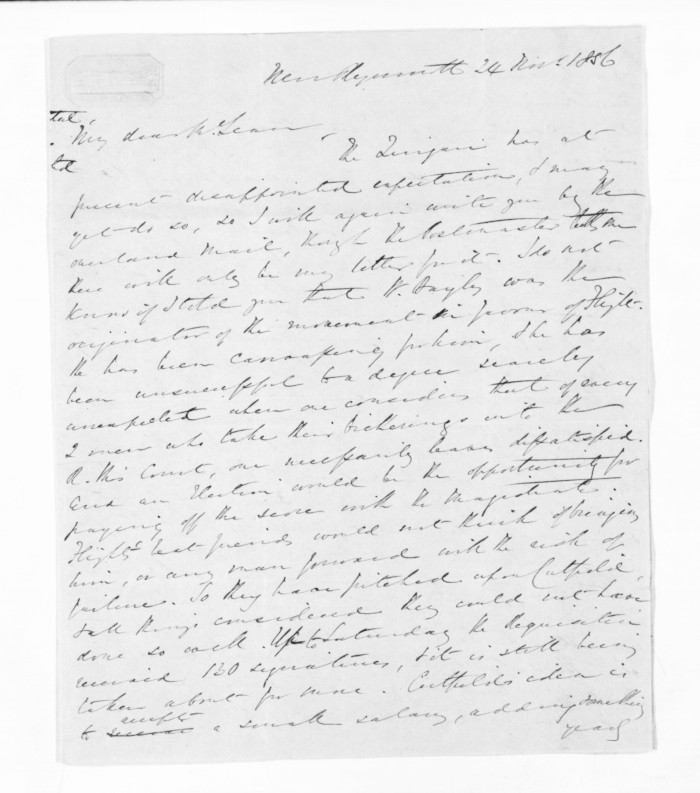 New Plymouth 24 Nov. 1856
tal,
My dear McLean
td
The Zingari has at
present disappointed expectation, & may
yet do so, so I will again write you by the
overland Mail, though the Postmaster tells me
there will only be my letter for it. I do not
know if I told you that W. Bayley was the
originator of the movement in favour of Flight.
He has been canvassing for him, & he has
been unsuccessful to a degree scarcely
unexpected when one considers that of every
2 men who take their bickerings into the
R. Ms Court, one necessarily leaves dissatisfied.
And an Election would be the opportunity for
paying off the score with the Magistrate.
Flight's best friends would not think of bringing
him, or any man forward with the risk of
failure. So they have pitched upon Cutfield,
& all things considered they could not have
done so well. Up to Saturday the Requisition
received 130 signatures, & it is still being
taken about for more. Cutfield's idea is
to accept a small salary, adding something
yearly